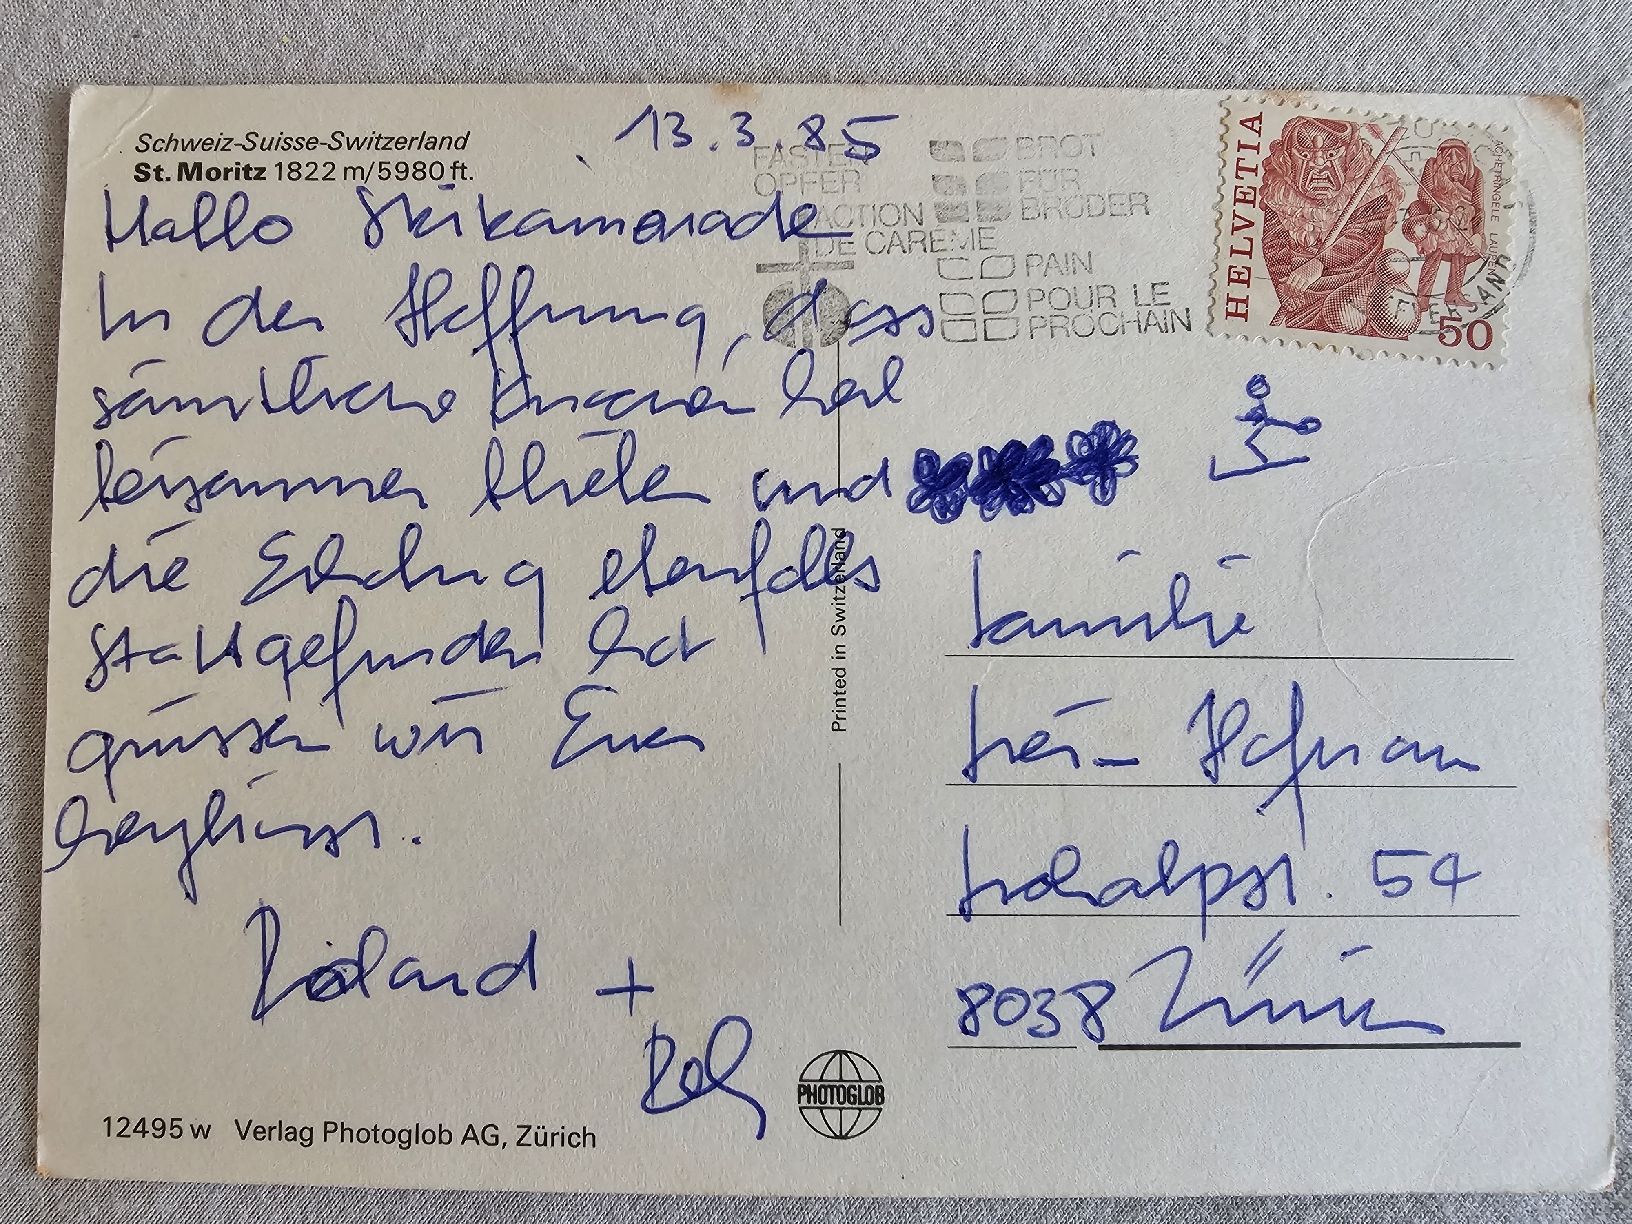 Schweiz-Suisse-Switzerland
St. Moritz 1822 m/5980 ft.
13.3.85
Hallo Skikamerade
In der Hoffnung, dass
sämtliche Knochen heil
beisammen blieben und
die Erholung ebenfalls
stattgefunden hat
grüssen wir Euch
herzlichst.
Roland +
FASTEN
OPFER
ACTION
DE CARÊME
BROT
FÜR
BRÜDER
PAIN
POUR LE
PROCHAIN
HELVETIA
50
Printed in Switzerland
Familie
Hofmann
54
8038 Zürich
PHOTOGLOB
12495 w Verlag Photoglob AG, Zürich